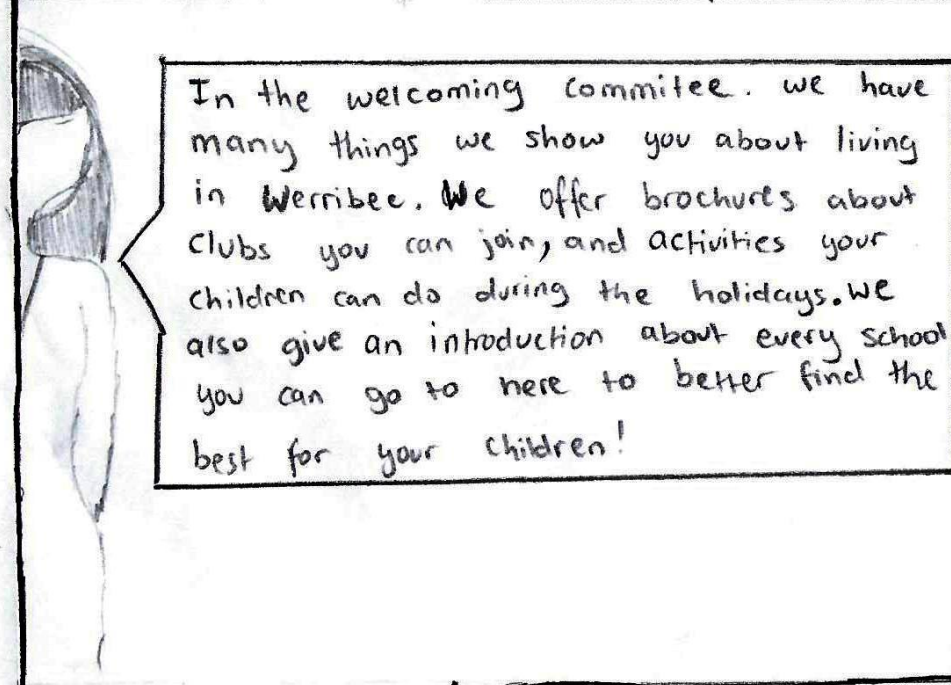 In the welcoming commitee. we have
many things we show you about living
in Werribee. We offer brochures about
clubs you can join, and activities your
children can do during the holidays. we
also give an introduction about every school
you can go to here to better find the
best for your children!